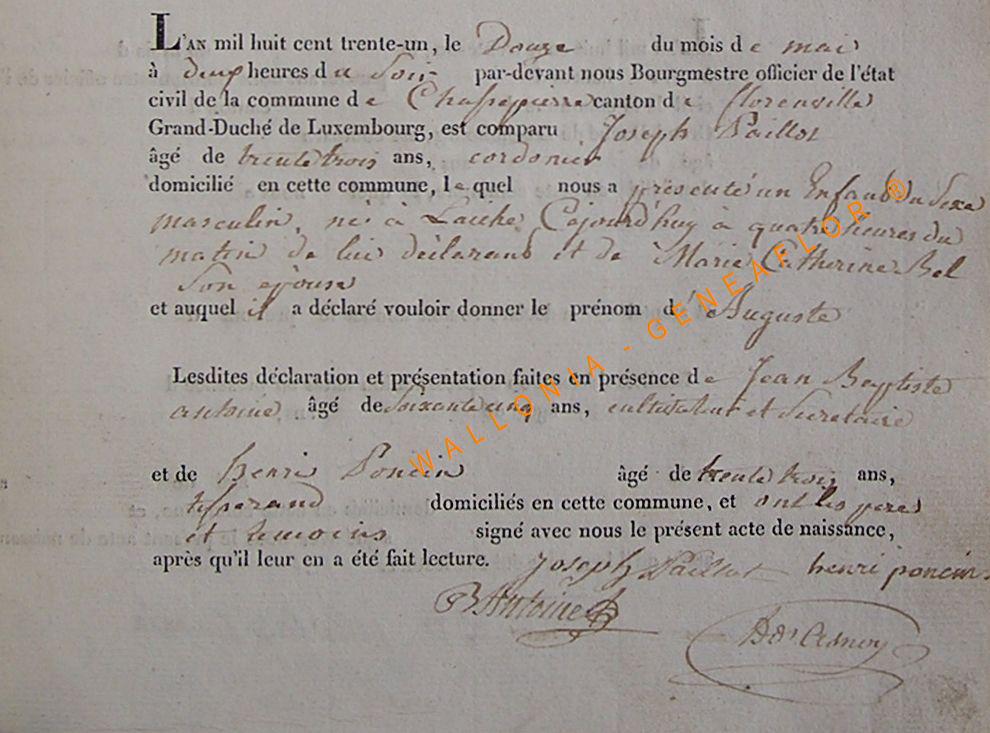 L'AN mil huit cent trente-un, le Douze du mois de mai
à deux heures du Soir par-devant nous Bourgmestre officier de l'état
civil de la commune de Chassepierre canton de florenville
Grand-Duché de Luxembourg, est comparu Joseph Paillot
âgé de trente trois ans, cordonier
domicilié en cette commune, lequel nous a présenté un Enfant du Sexe
masculin, né à Laiche Cejourd'huy à quatre heures du
matin de lui déclarant et de Marie Catherine Bel
Son épouse
et auquel il a déclaré vouloir donner le prénom d'Auguste
Lesdites déclaration et présentation faites en présence de Jean Baptiste
antoine âgé de Soixante cinq ans, cultivateur et Secretaire
et de henri Poncin âgé de trente trois ans,
tisserand domiciliés en cette commune, et ont les peres
et temoins signé avec nous le présent acte de naissance,
après qu'il leur en a été fait lecture. Joseph Paillot henri poncin
B Antoine
WALLONIA - GENEAFLOR ®